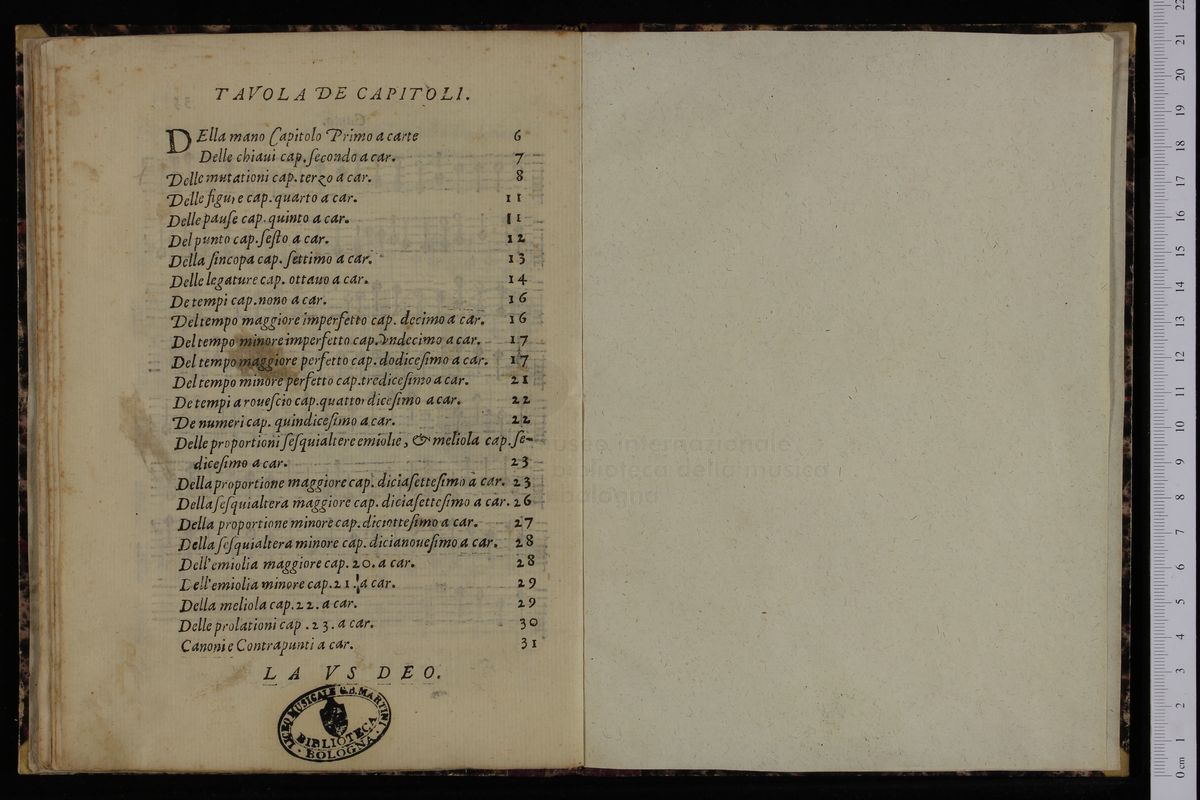 TAVOLA DE CAPITOLI.
DElla mano Capitolo Primo a carte 6
Delle chiaui cap. ſecondo a car. 7
Delle mutationi cap. terzo a car. 8
Delle figure cap. quarto a car. 11
Delle pauſe cap. quinto a car. 11
Del punto cap. ſeſto a car. 12
Della ſincopa cap. ſettimo a car. 13
Delle legature cap. ottauo a car. 14
De tempi cap. nono a car. 16
Del tempo maggiore imperfetto cap. decimo a car. 16
Del tempo minore imperfetto cap. Vndecimo a car. 17
Del tempo maggiore perfetto cap. dodiceſimo a car. 17
Del tempo minore perfetto cap. trediceſimo a car. 21
De tempi a roueſcio cap. quattordiceſimo a car. 22
De numeri cap. quindiceſimo a car. 22
Delle proportioni ſeſquialtere emiolie, & meliola cap. ſe-
diceſimo a car. 23
Della proportione maggiore cap. diciaſetteſimo a car. 23
Della ſeſquialtera maggiore cap. diciaſetteſimo a car. 26
Della proportione minore cap. diciotteſimo a car. 27
Della ſeſquialtera minore cap. dicianoueſimo a car. 28
Dell'emiolia maggiore cap. 20. a car. 28
Dell'emiolia minore cap. 21. a car. 29
Della meliola cap. 22. a car. 29
Delle prolationi cap. 23. a car. 30
Canoni e Contrapunti a car. 31
LAVS DEO.
LICEO MUSICALE G.B. MARTINI
BIBLIOTECA
BOLOGNA
museo internazionale
biblioteca della musica
bologna
0 cm 1 2 3 4 5 6 7 8 9 10 11 12 13 14 15 16 17 18 19 20 21 22